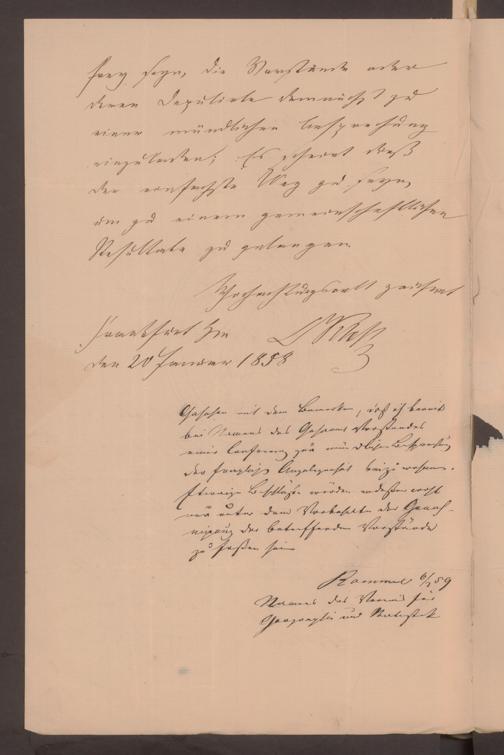 frey seyn, die Vorstände oder
deren Deputirte demnächst zu
einer mündlichen Besprechung
einzuladen; Es scheint dieß
der einfachste Weg zu seyn,
um zu einem gemeinschaftlichen
Resultate zu gelangen
Hochachtungsvoll zeichnet
Frankfurt
den 20 Januar 1858
Gesehen mit dem Bemerken, daß ich bereit
bei Namens des Vorstandes
einer Conferenz zur mündlichen Besprechung
der fraglichen Angelegenheit beizuwohnen.
Etwaige Beschlüsse würden indeßen wohl
nur unter dem Vorbehalte der Geneh-
migung der betreffenden Vorstände
zu faßen sein
Rommel 6/2 59
Namens des Vereins für
Geographie und Statistik